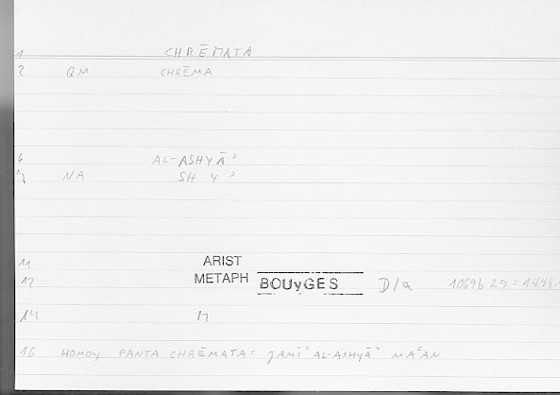 1 CHRĒMATA
2 QM CHRĒMA
6 AL-ASHYĀʾ
7 NA SH Y ʾ
11 ARIST
12 METAPH BOUyGES D/a 1069b 29 = 1448
14 M
16 HOMOY PANTA CHRĒMATA: JAMĪʿ AL-ASHYĀʾ MAʿAN